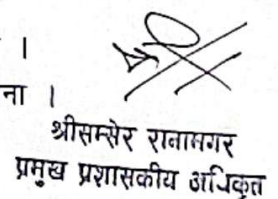 ।
ना ।
श्रीसम्सेर रानामगर
प्रमुख प्रशासकीय अधिकृत